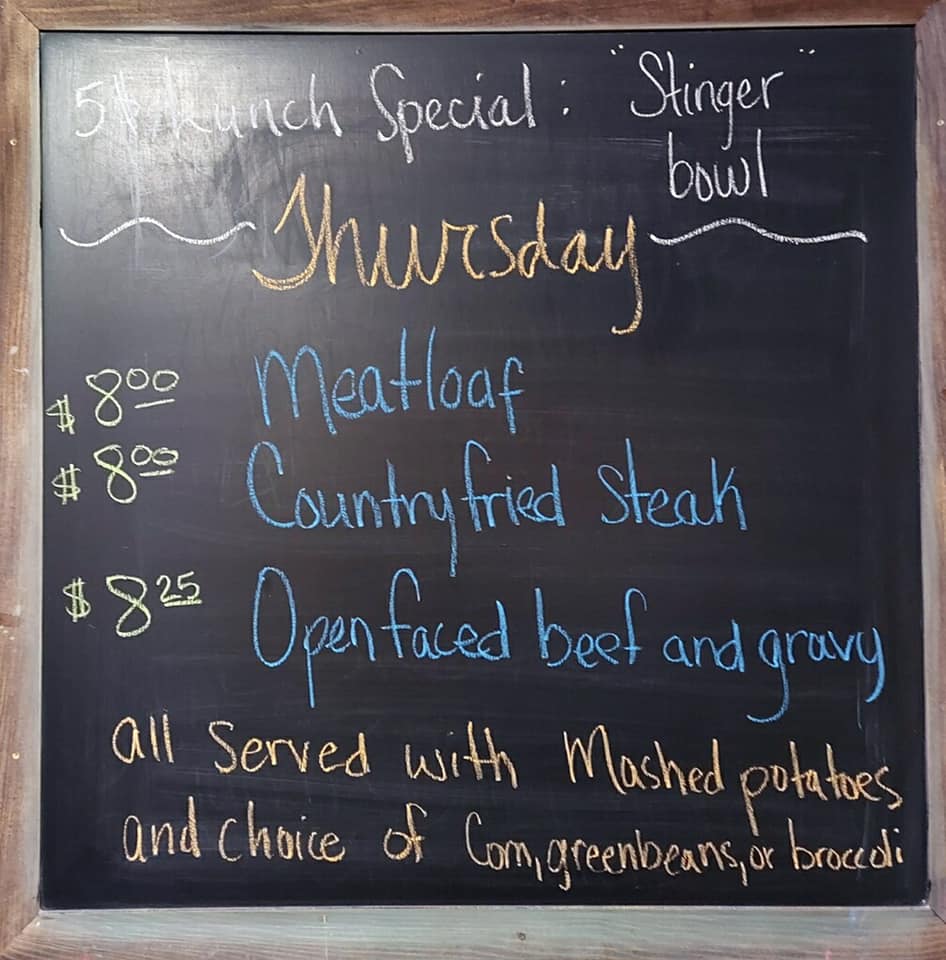 5$ Lunch Special: "Stinger"
bowl
Thursday
$ 8.00 Meatloaf
$ 8.00 Country fried Steak
$ 8.25 Open faced beef and gravy
all served with Mashed potatoes
and choice of Corn, greenbeans, or broccoli